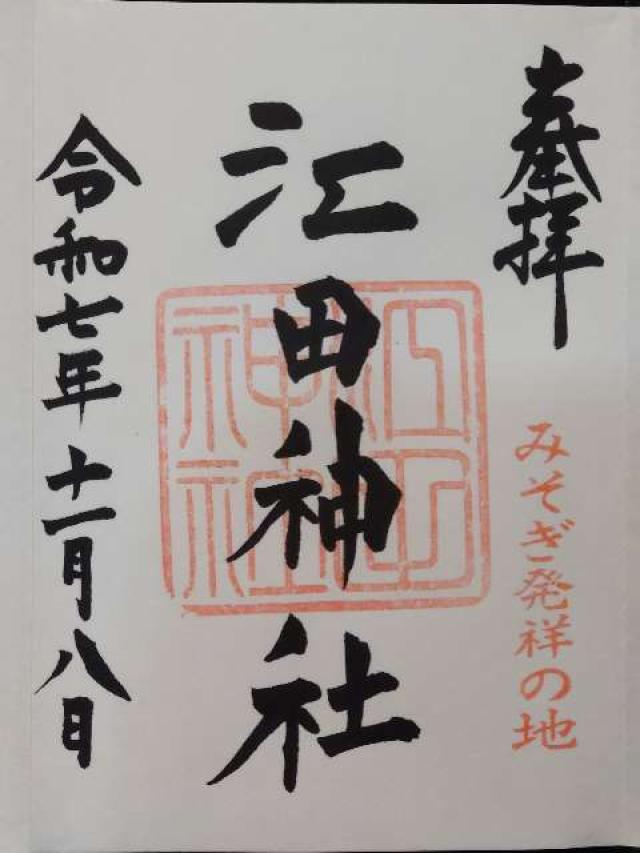 奉拝
みそぎ発祥の地
江田神社
江田神社
令和七年十一月八日